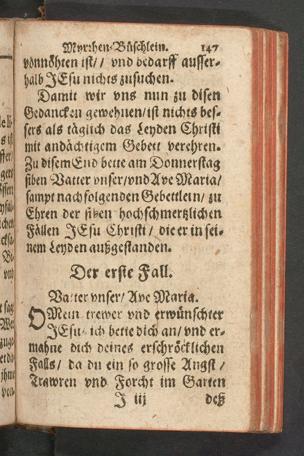 Myrrhen-Büschlein. 147
vönnöhten ist// vnd bedarff ausser-
halb JEsu nichts zusuchen.
Damit wir vns nun zu disen
Gedancken gewehnen/ist nichts bes-
sers als täglich das Leyden Christi
mit andächtigem Gebett verehren.
Zu disem End bette am Donnerstag
siben Vatter vnser/vnd Ave Maria/
sampt nachfolgenden Gebettlein/ zu
Ehren der siben hochschmertzlichen
Fällen JEsu Christi / die er in sei-
nem Leyden außgestanden.
Der erste Fall.
Vatter vnser/ Ave Maria.
O Mein trewer vnd erwünschter
JEsu/ ich bette dich an/ vnd er-
mahne dich deines erschröcklichen
Falls/ da du ein so grosse Angst/
Trawren vnd Forcht im Garten
J iij deß